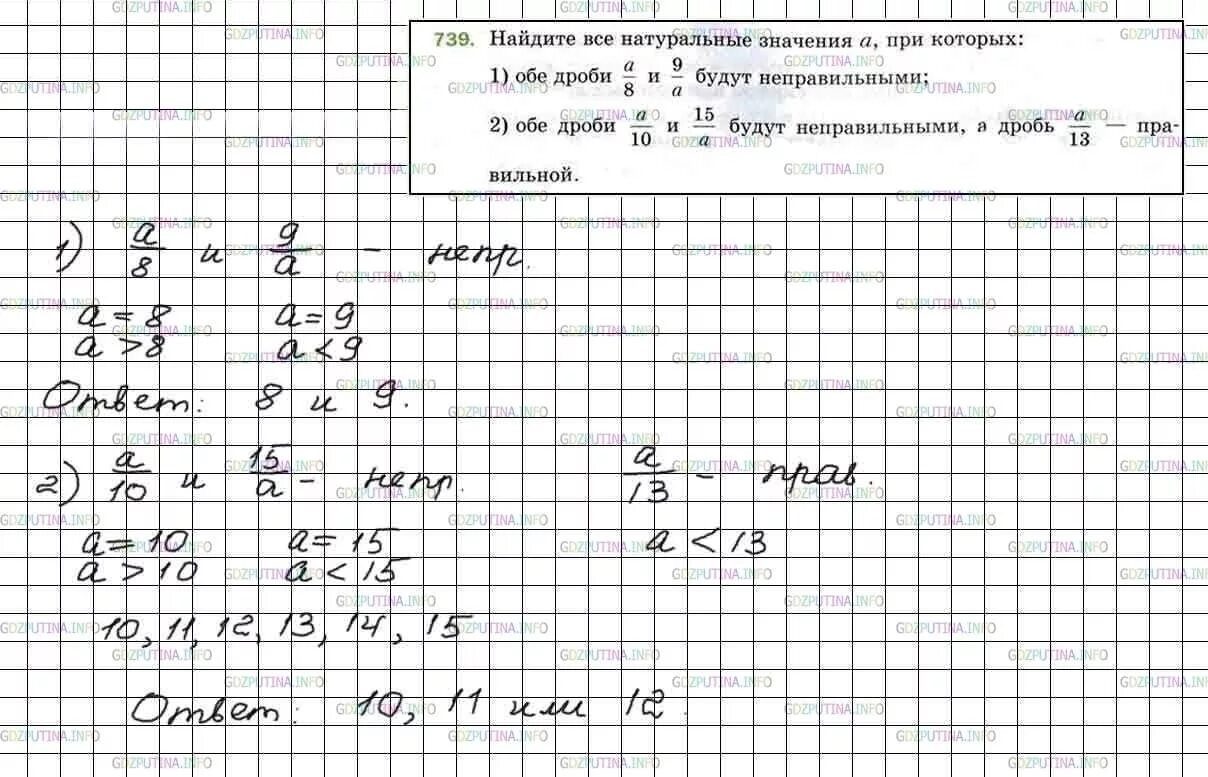 739. Найдите все натуральные значения a, при которых:
1) обе дроби a/8 и 9/a будут неправильными;
2) обе дроби a/10 и 15/a будут неправильными, а дробь a/13 — пра-
вильной.
1) a/8 и 9/a - непр.
a = 8 a = 9
a > 8 a < 9
Ответ: 8 и 9.
2) a/10 и 15/a - непр. a/13 - прав.
a = 10 a = 15 a < 13
a > 10 a < 15
10, 11, 12, 13, 14, 15
Ответ: 10, 11 или 12.
GDZPUTINA.INFO